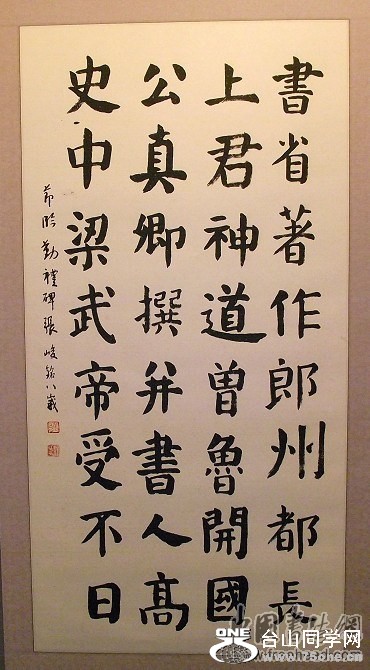 書省著作郎州都長
上君神道曾魯開國
公真卿撰并書人高
史中梁武帝受不日
節臨勤禮碑張峻銘八歲
中国書法網
ONE
台山同学网